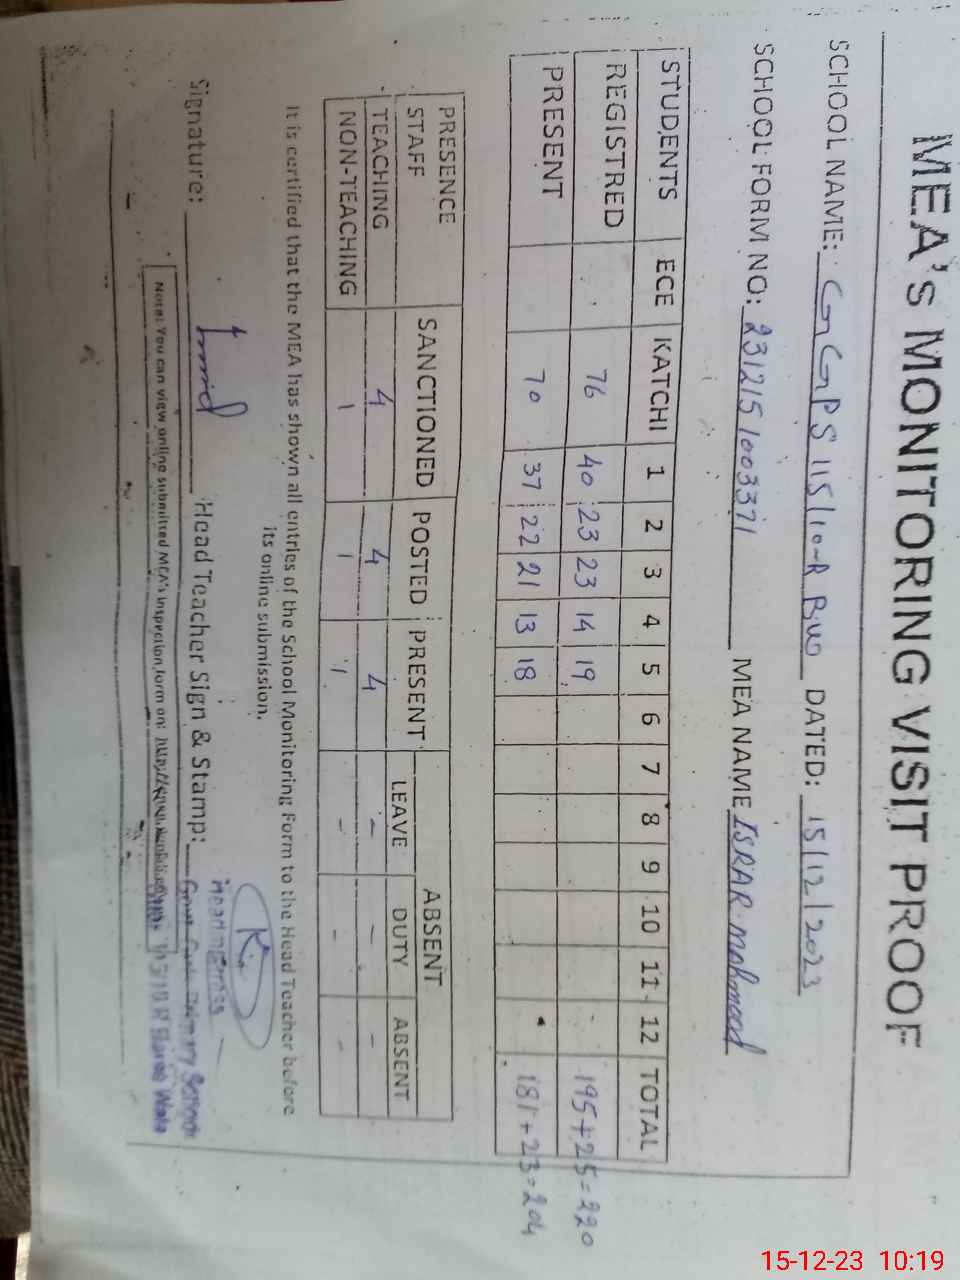 MEA's MONITORING VISIT PROOF
SCHOOL NAME: GGPS 115/10-R DATED: 15/12/2023
SCHOOL FORM NO: 231215 1003371 MEA NAME ISRAR mahmood
STUDENTS ECE KATCHI 1 2 3 4 5 6 7 8 9 10 11 12 TOTAL
REGISTRED 76 40 23 23 14 19 195+25=220
PRESENT 70 37 22 21 13 18 181+23=204
PRESENCE STAFF SANCTIONED POSTED PRESENT ABSENT
LEAVE DUTY ABSENT
TEACHING 4 4 4 - - -
NON-TEACHING 1 1 1 - - -
It is certified that the MEA has shown all entries of the School Monitoring Form to the Head Teacher before
its online submission.
Signature: Head Teacher Sign & Stamp:
Headmistress
Govt. Girls Primary School
115/10 R
Note: You can view online submitted MEA's inspection form on:
15-12-23 10:19